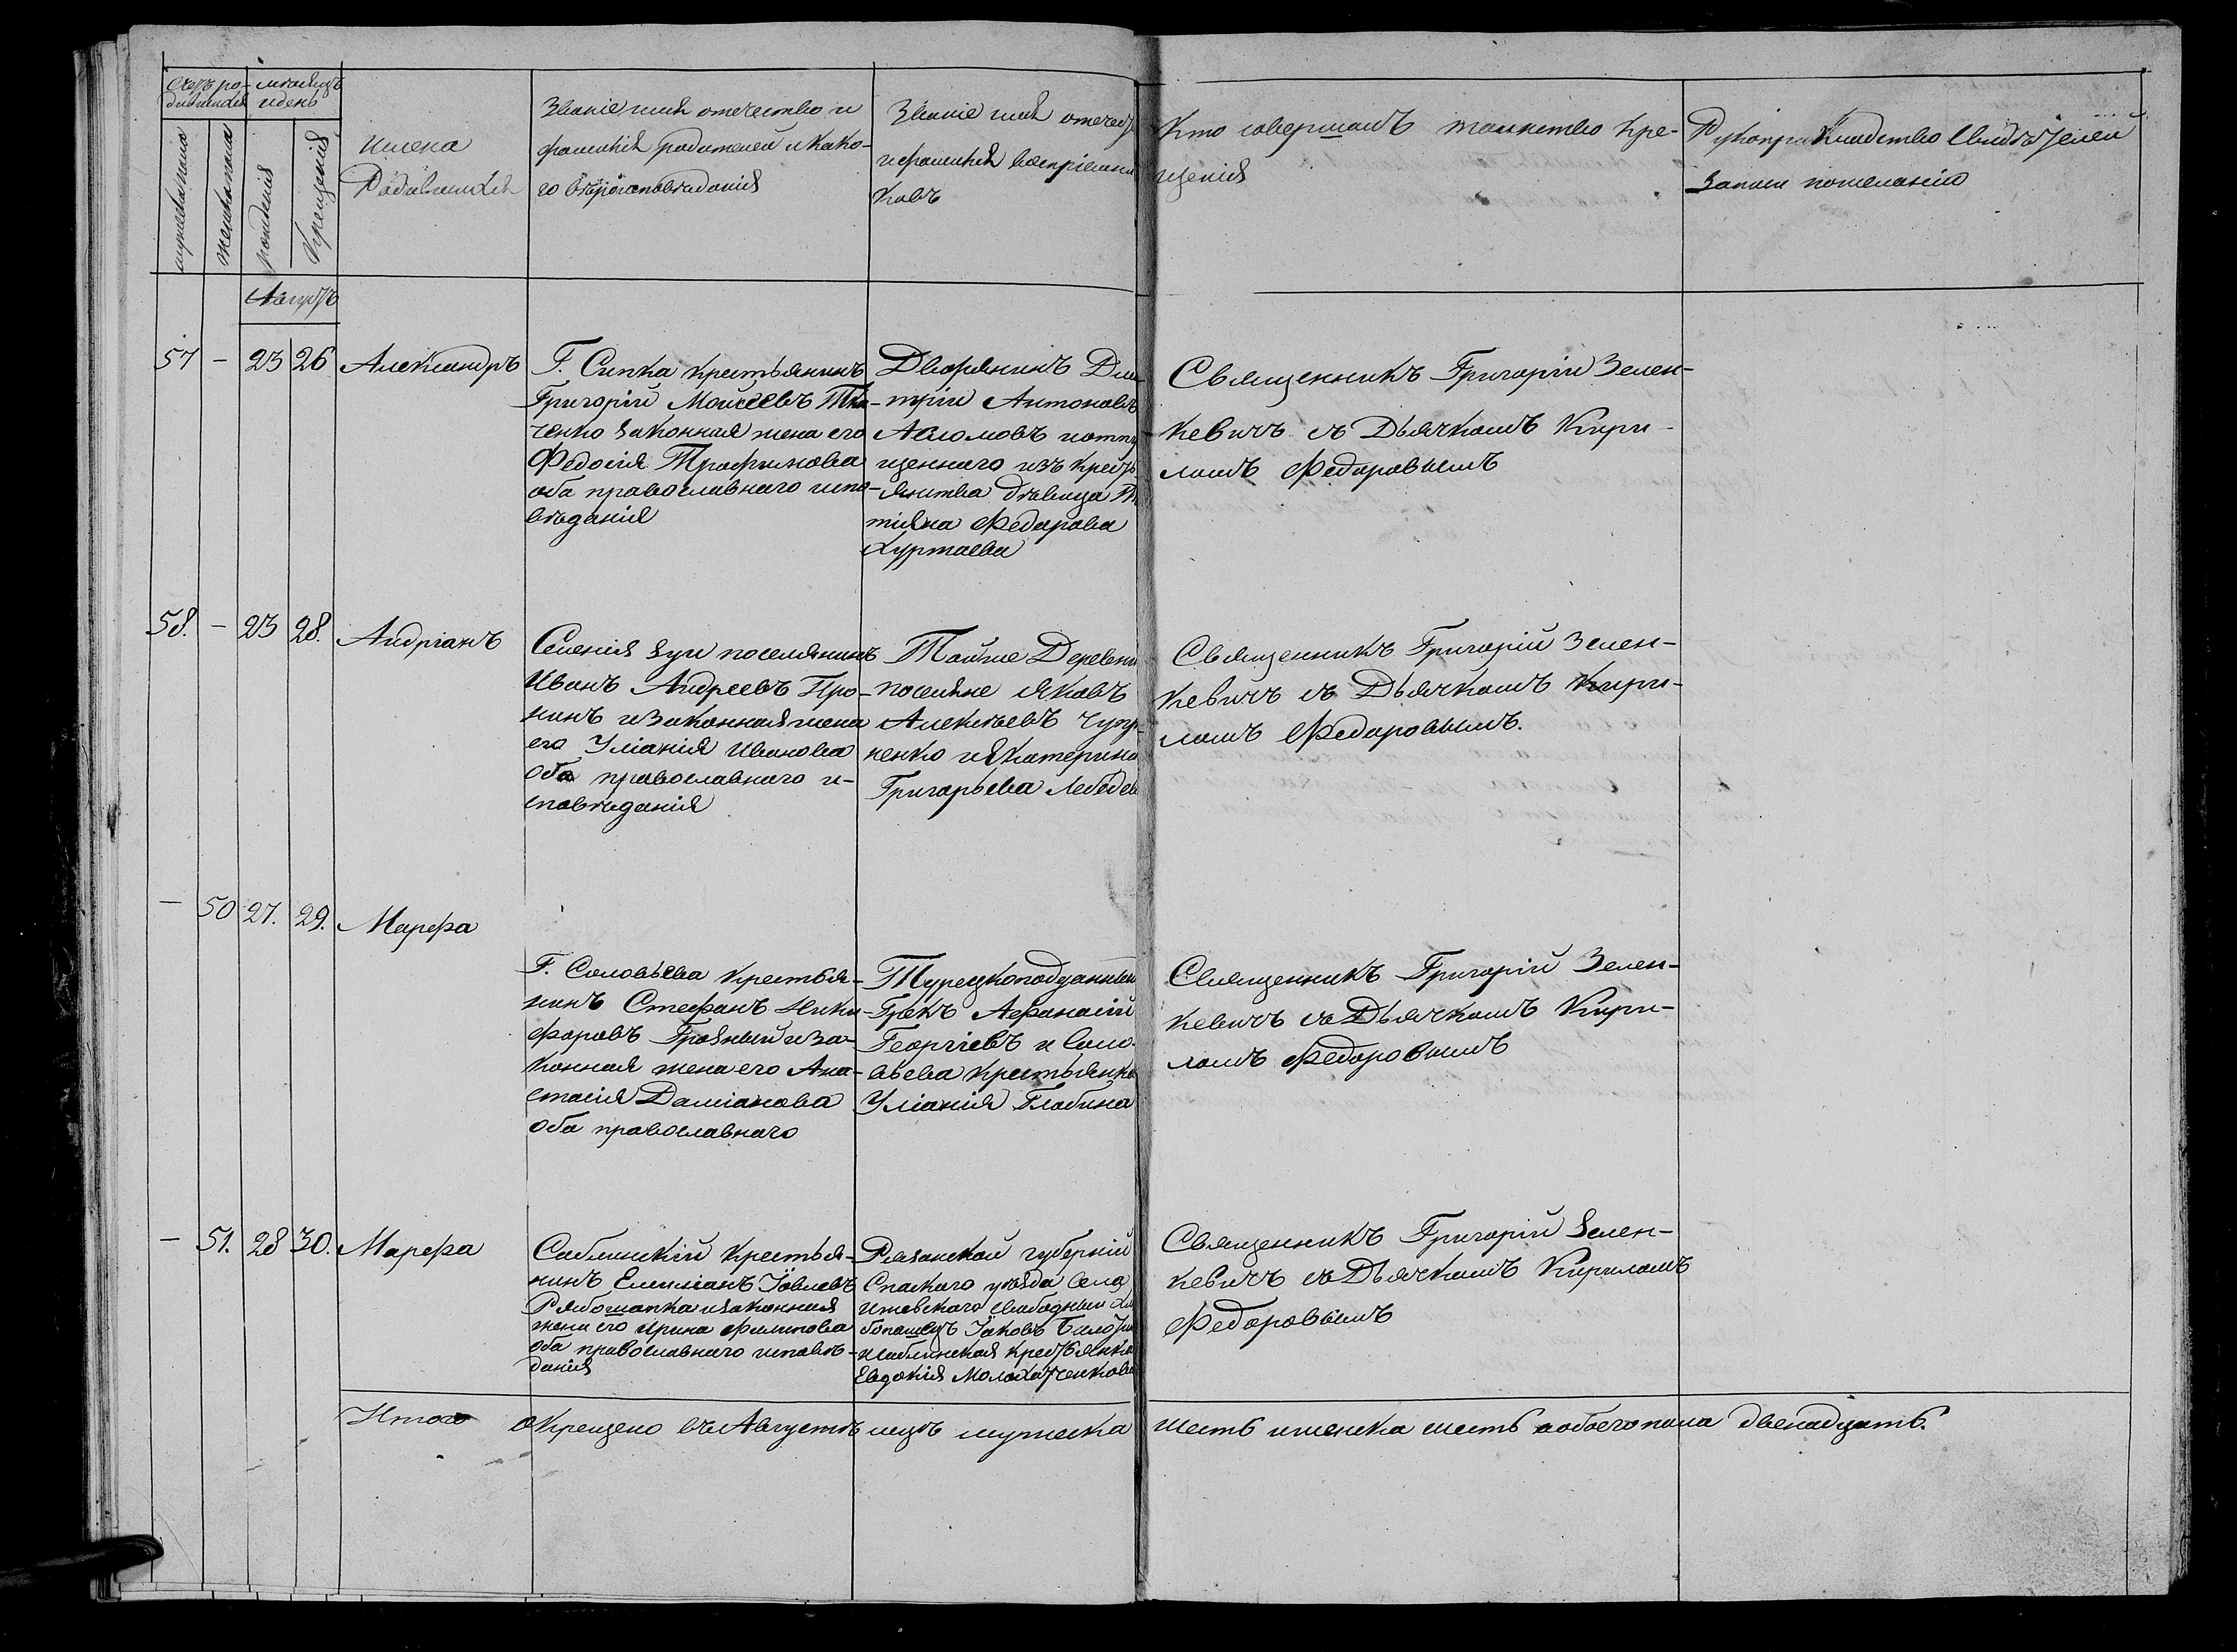 Счетъ ро-
дившихся
мѣсяцъ
и день
мужеска пола
женска пола
рожденія
крещенія
Имена
Родившихся
Званіе имя отечество и
фамилія родителей и како-
го вѣроисповѣданія
Званіе имя отечест
и фамилія воспріемни
ковъ
Кто совершалъ таинство кре-
щенія
Рукоприкладство свидѣтелей
записи по желанію
Августъ
57 - 23 26 Александръ
Г. Сипка крестьянинъ
Григорій Моисеевъ Тка-
ченко законная жена его
Федосія Трофимова
оба православнаго испо-
вѣданія
Дворянинъ Дми
трій Антоновъ
Авломовъ и отпу
щеннаго изъ крестъ
янства дѣвица Та
тіяна Федорова
Хуртаева
Священникъ Григорій Зелен-
кевичъ съ Дьячкомъ Кири-
ломъ Федоровымъ
58. - 23 28. Андріанъ
Селенія Зуи поселянинъ
Иванъ Андреевъ Про-
нинъ и законная жена
его Уліанія Иванова
оба православнаго и-
сповѣданія
Той же Деревни
поселяне Яковъ
Алексѣевъ Чупр
ненко и Екатерина
Григорьева Лебедев
Священникъ Григорій Зелен-
кевичъ съ Дьячкомъ Кири-
ломъ Федоровымъ.
- 50 27. 29. Марфа
Г. Соловьева Крестья-
нинъ Стефанъ Ники-
форовъ Грозный и за-
конная жена его Ана-
стасія Даміанова
оба православнаго
Турецкоподданный
Грекъ Афанасій
Георгіевъ и Соло-
вьева крестьянка
Уліанія Глобина
Священникъ Григорій Зелен-
кевичъ съ Дьячкомъ Кири-
ломъ Федоровымъ
- 51. 28 30. Марфа
Саблинскій крестья-
нинъ Емиліанъ Іовлевъ
Рябошапка и законная
жена его Ирина Филипова
оба православнаго исповѣ-
данія
Резанской губерніи
Спаскаго уѣзда села
Ижевскаго свободный хлѣ
бопашецъ Іаковъ
и Саблинская крестьянка
Евдокія
Священникъ Григорій Зелен-
кевичъ съ Дьячкомъ Кириломъ
Федоровымъ
Итого окрещено въ Августѣ мцѣ мужеска шесть и женска шесть а обоего пола двенадцать.